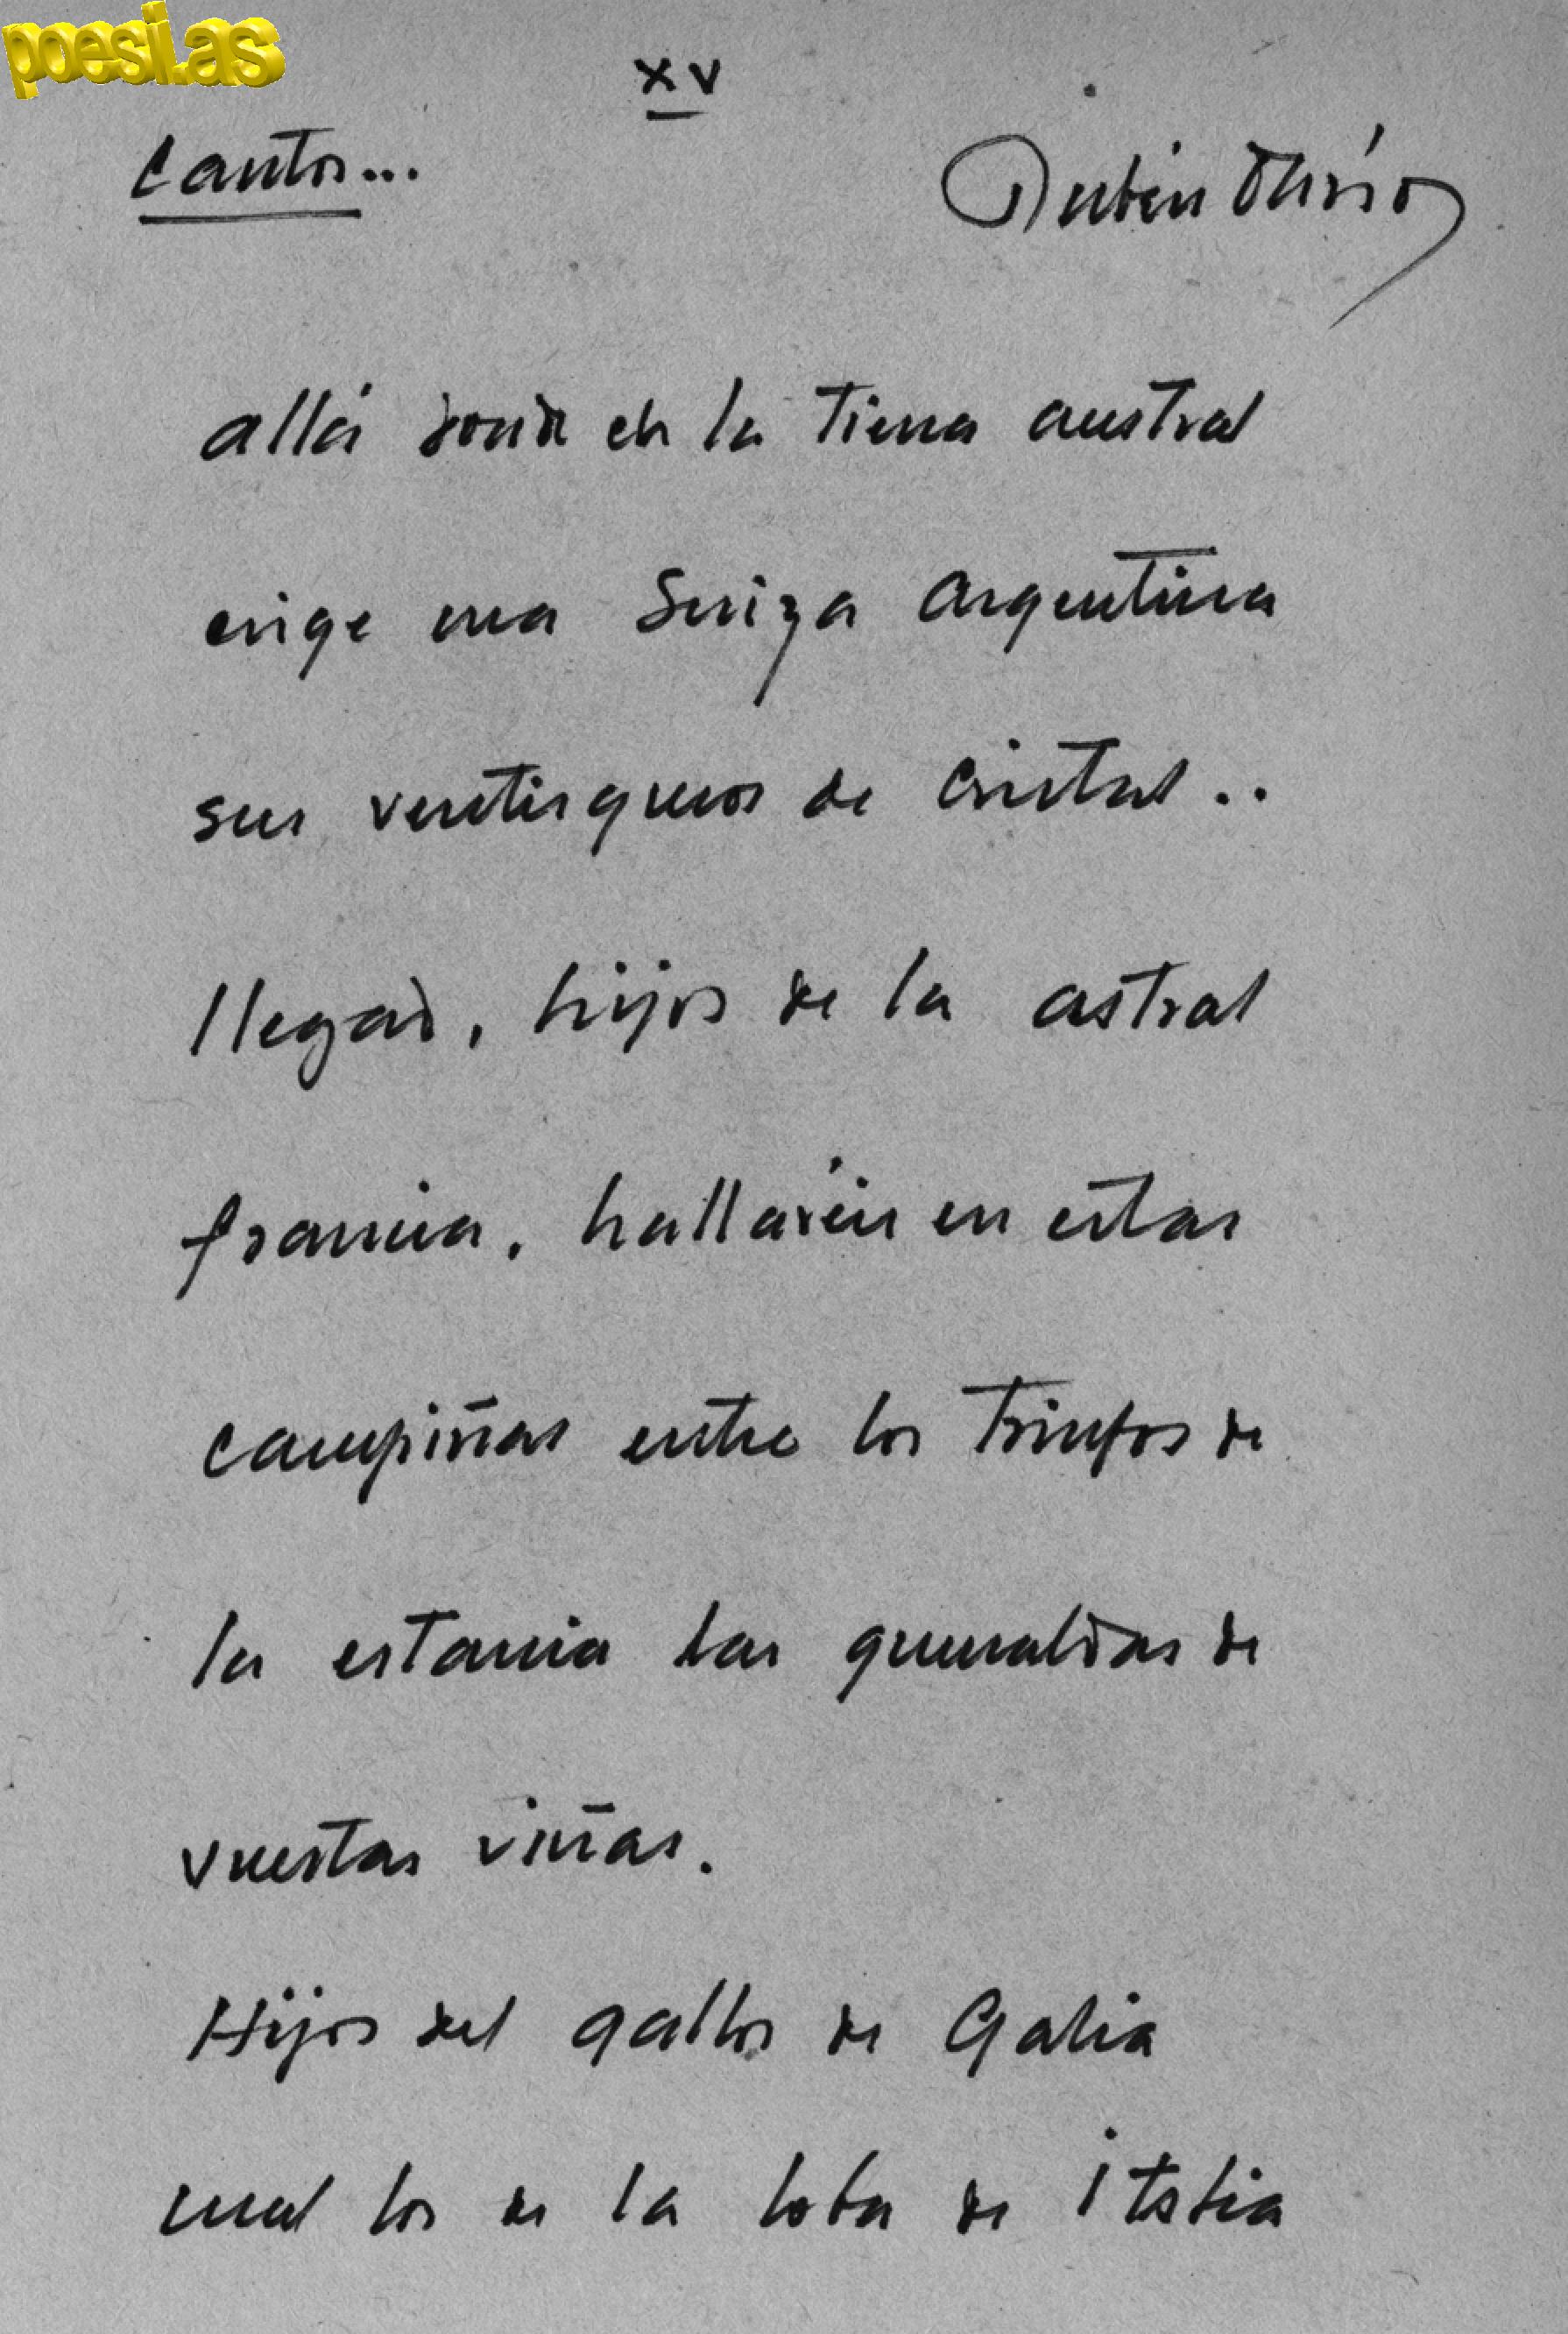 poesi.as
XV
Cantos...
Rubén Darío
allá donde en la tierra austral
erige una Suiza Argentina
sus ventisqueros de cristal..
llegad, hijos de la astral
francia, hallaréis en estas
campiñas entre los triunfos de
la estancia las guirnaldas de
vuestras viñas.
Hijos del gallo de Galia
cual los de la loba de italia